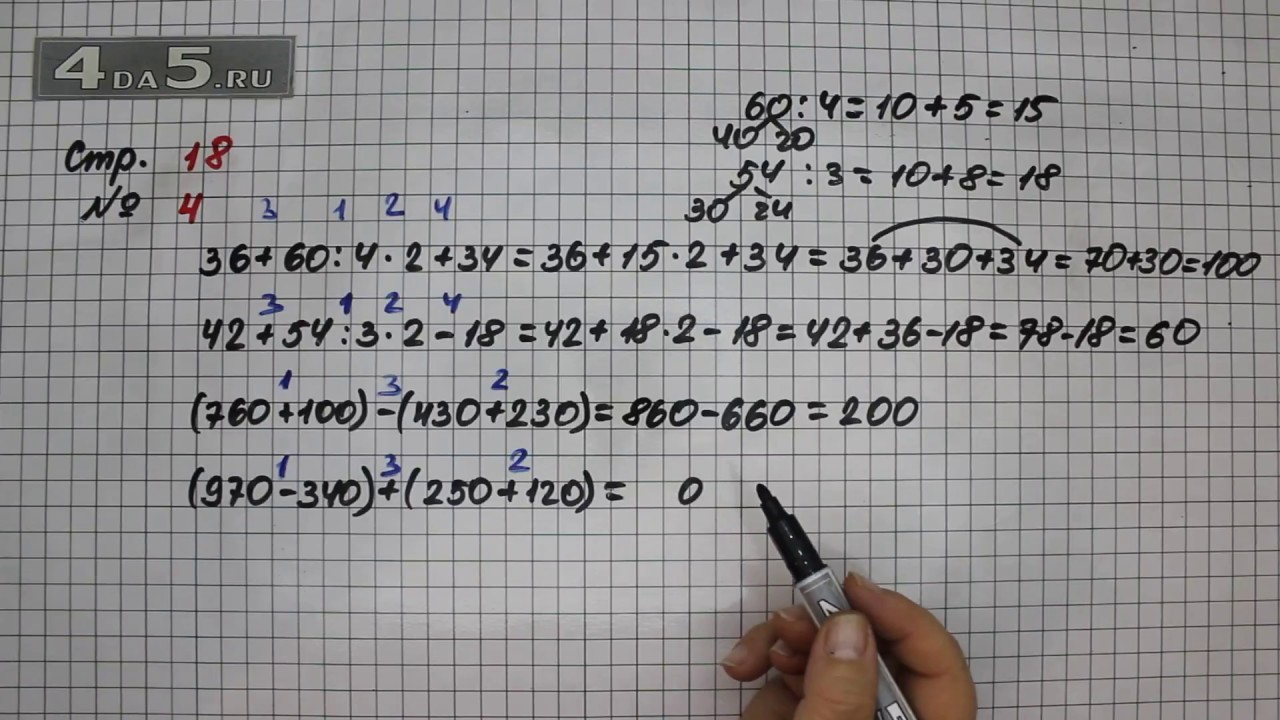 4DA5.RU
60:4=10+5=15
40 20
Стр. 18
54:3=10+8=18
№ 4
30 24
3 1 2 4
36+60:4·2+34=36+15·2+34=36+30+34=70+30=100
3 1 2 4
42+54:3·2-18=42+18·2-18=42+36-18=78-18=60
1 3 2
(760+100)-(430+230)=860-660=200
1 3 2
(970-340)+(250+120)= 0